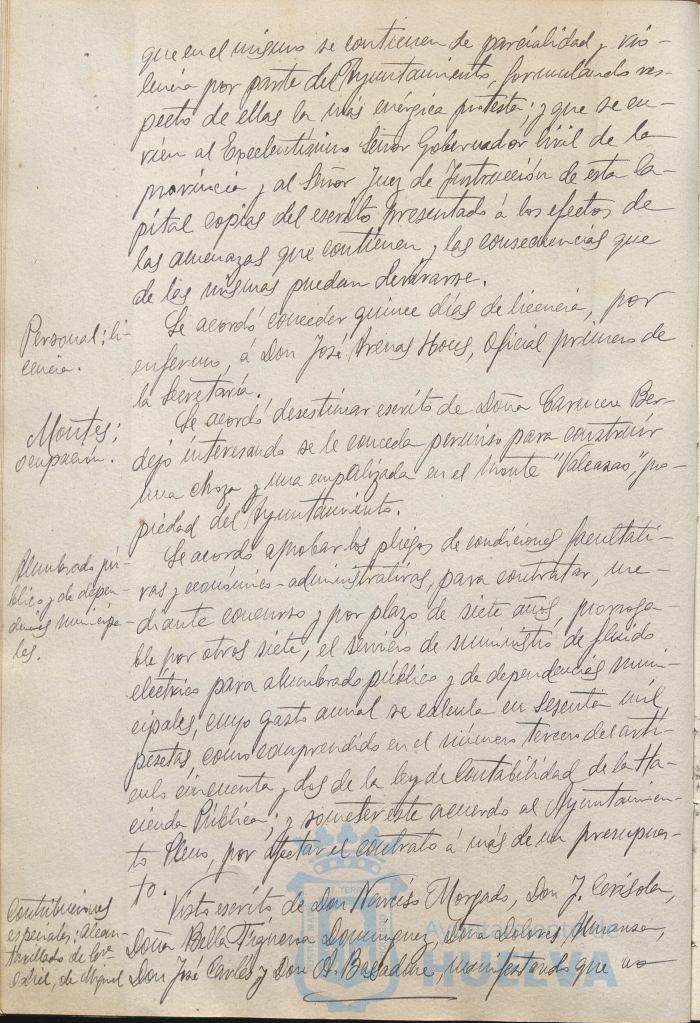 que en el mismo se contienen de parcialidad y vio-
lencia por parte del Ayuntamiento, formulando res-
pecto de ellas la más enérgica protesta; y que se en-
vien al Excelentísimo Señor Gobernador Civil de la
provincia y al Señor Juez de Instrucción de esta Ca-
pital copias del escrito presentado á los efectos de
las amenazas que contienen y las consecuencias que
de las mismas puedan derivarse.
Personal; li-
cencia.
Se acordó conceder quince días de licencia, por
enfermo, á Don José Arenas, Oficial primero de
la Secretaría.
Montes;
ocupación.
Se acordó desestimar escrito de Doña Carmen Ber-
dejo interesando se le conceda permiso para construir
una choza y una empalizada en el monte "Valcasao", pro-
piedad del Ayuntamiento.
Alumbrado pú-
blico y de depen-
dencias municipa-
les.
Se acordó aprobar los pliegos de condiciones facultati-
vas y económico-administrativas, para contratar, me-
diante concurso y por plazo de siete años, prorroga-
ble por otros siete, el servicio de suministro de fluido
eléctrico para alumbrado público y de dependencias muni-
cipales, cuyo gasto anual se calcula en sesenta mil
pesetas, como comprendido en el número tercero del artí-
culo cincuenta y dos de la ley de Contabilidad de la Ha-
cienda Pública; y someter este acuerdo al Ayuntamien-
to Pleno, por afectar el contrato á más de un presupues-
to.
Contribuciones
especiales; Alcan-
tarillado de
de Miguel
Visto escrito de Don Narciso Morgado, Don J. Cerisola,
Doña Bella Figueroa Domínguez, Doña Dolores Almansa,
Don José Carlos y Don A. Balsadure, manifestando que no
Ayuntamiento de
HUELVA